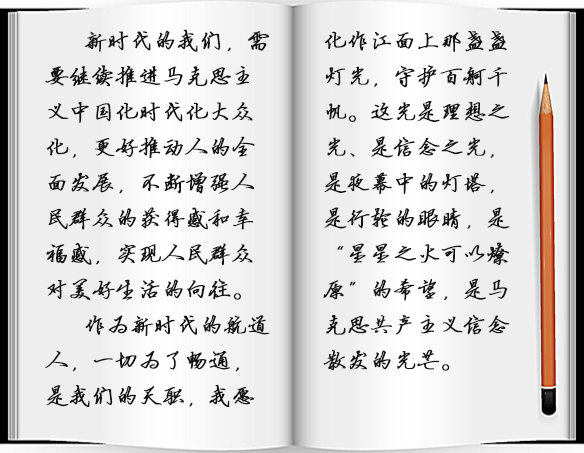 新时代的我们，需
要继续推进马克思主
义中国化时代化大众
化，更好推动人的全
面发展，不断增强人
民群众的获得感和幸
福感，实现人民群众
对美好生活的向往。
作为新时代的航道
人，一切为了畅通，
是我们的天职，我愿
化作江面上那盏盏
灯光，守护百舸千
帆。这光是理想之
光、是信念之光，
是夜幕中的灯塔，
是行轮的眼睛，是
“星星之火可以燎
原”的希望，是马
克思共产主义信念
散发的光芒。